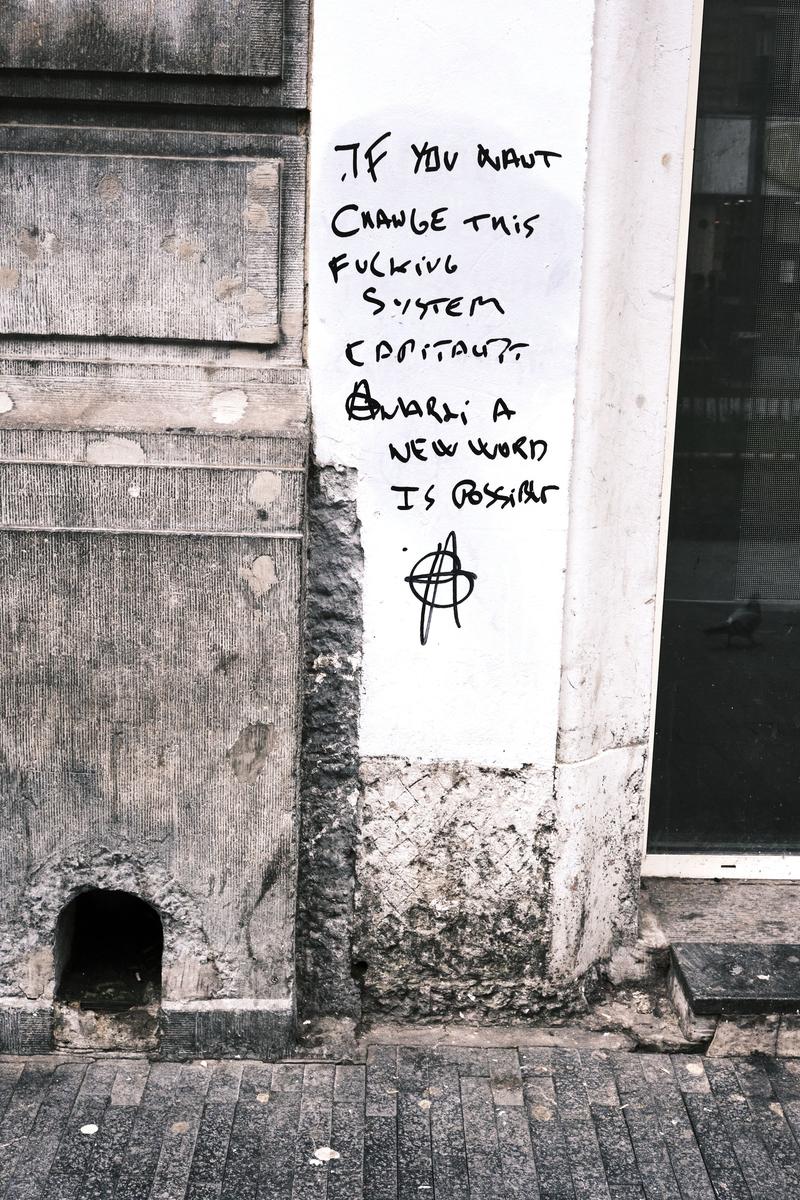 IF YOU WANT
CHANGE THIS
FUCKING
SYSTEM
CAPITALIST
ANARKI A
NEW WORD
IS POSSIBLE
A